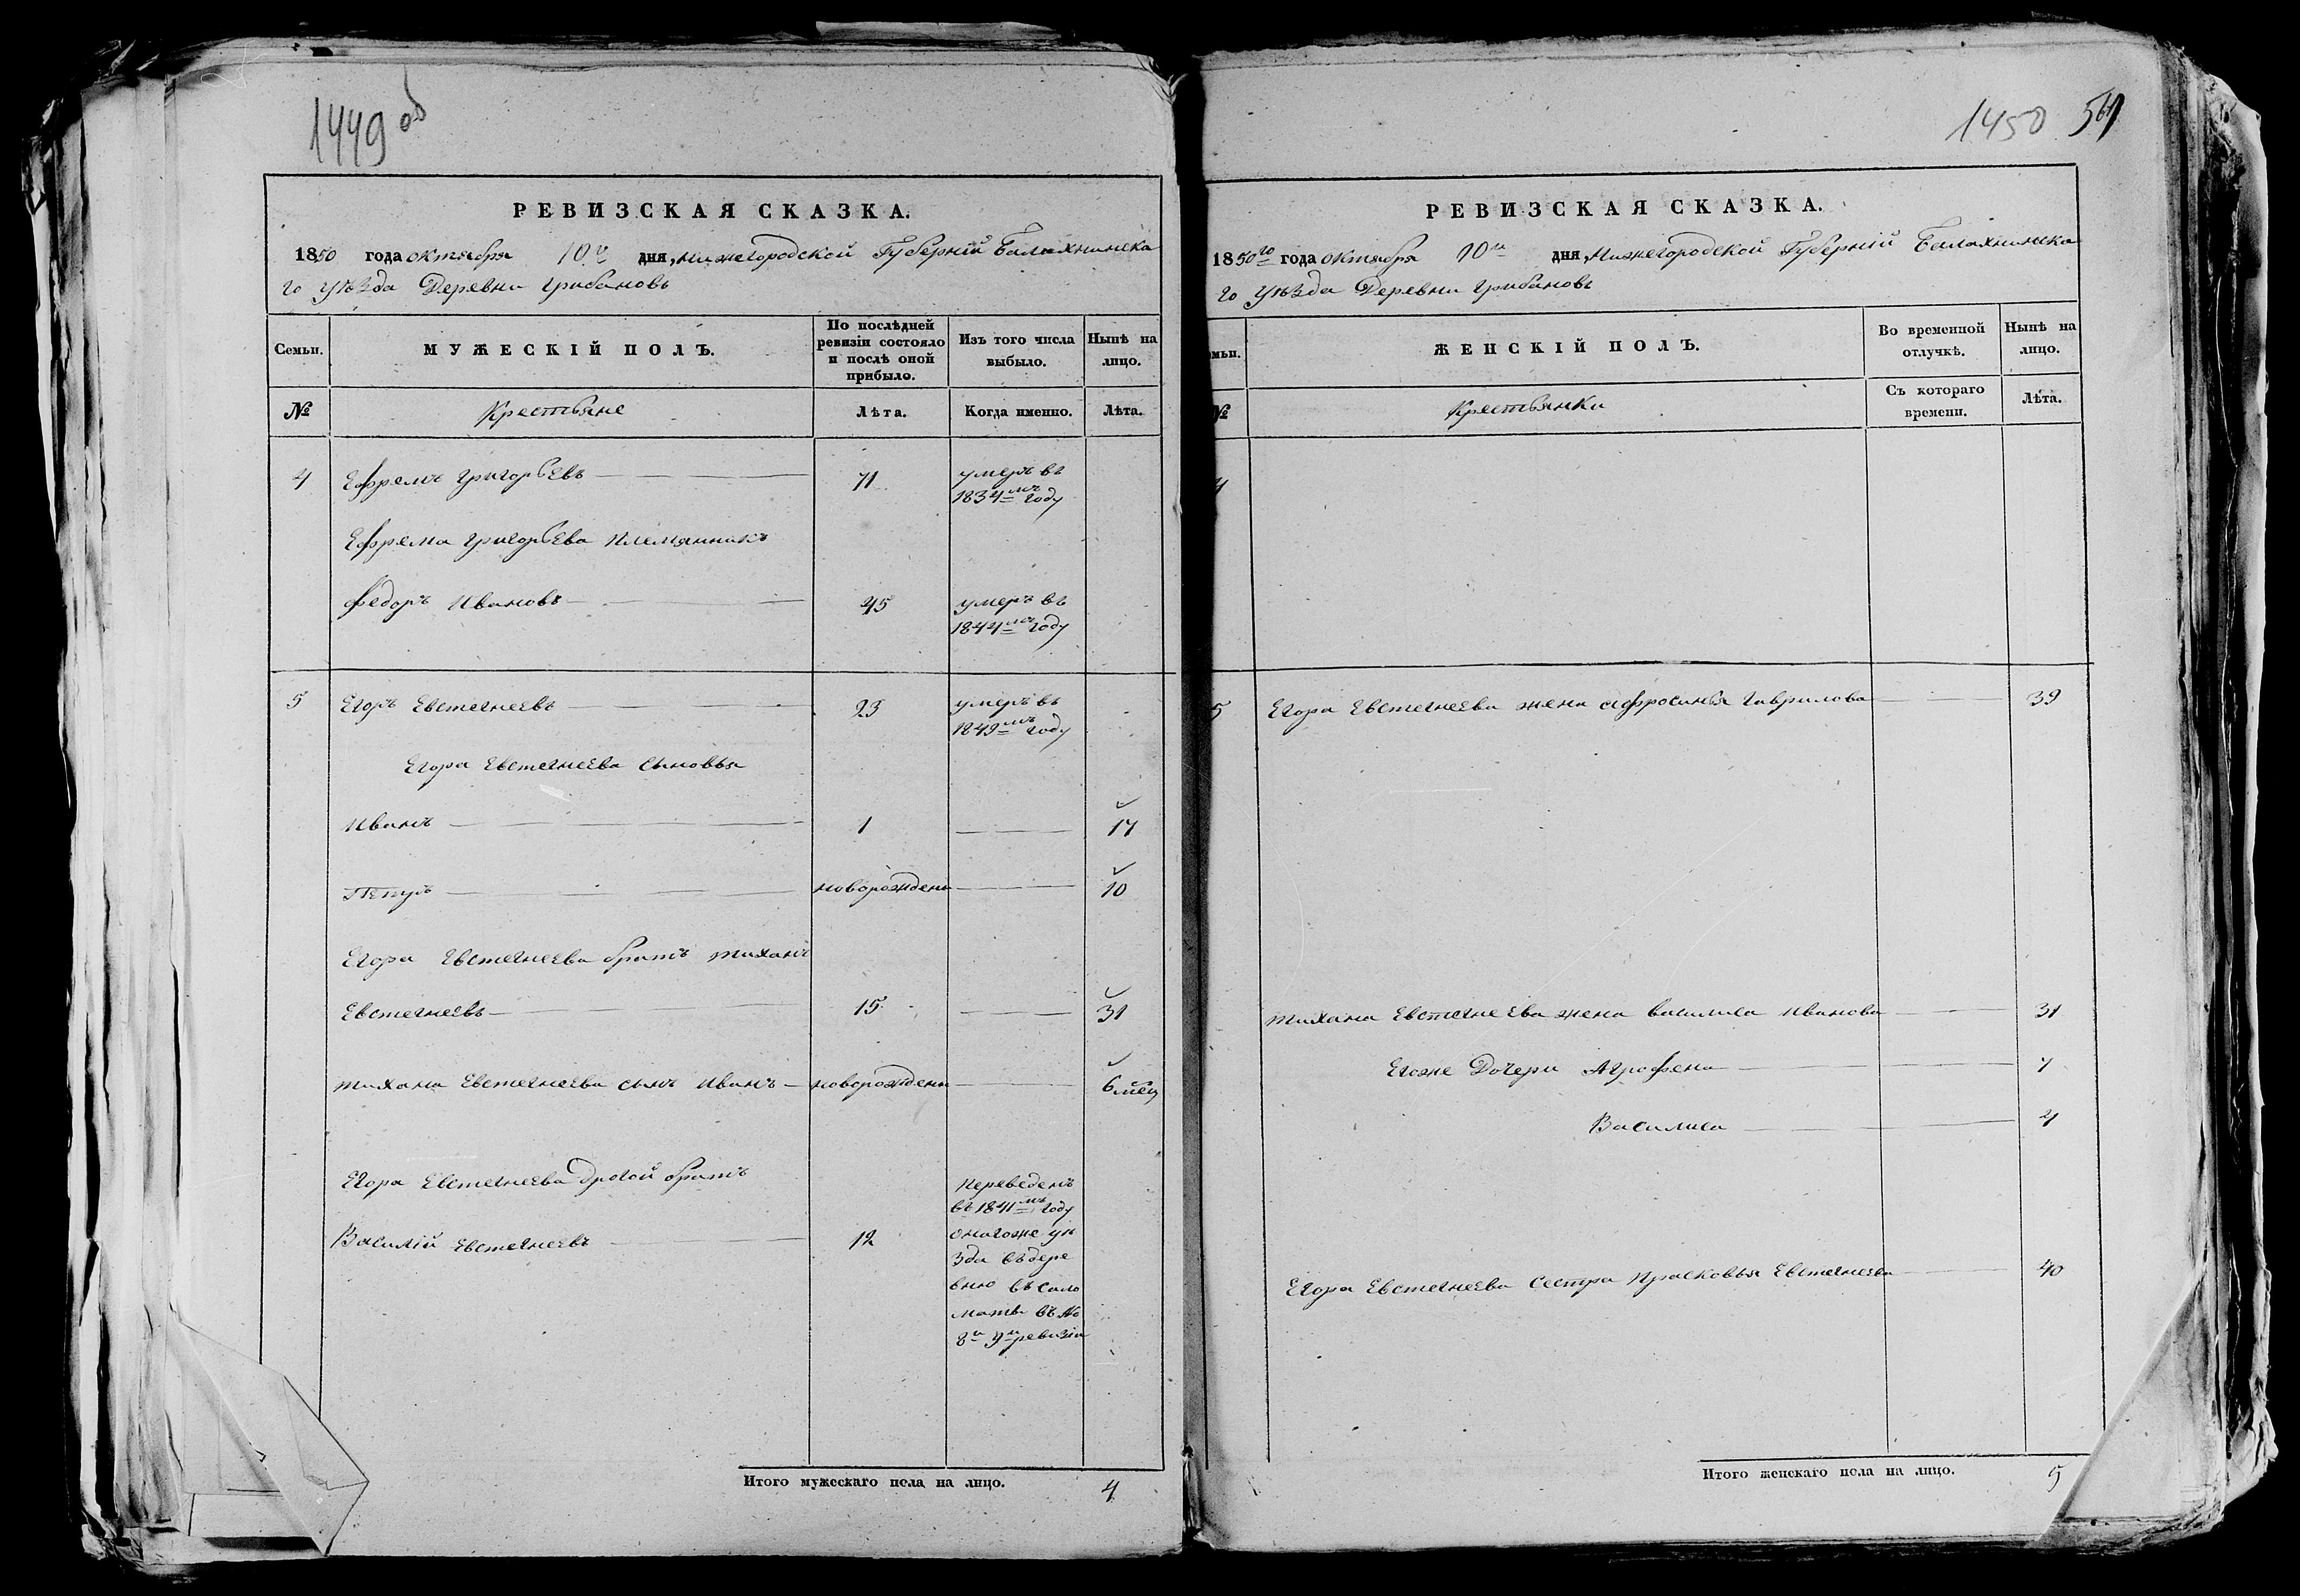 1449 об
РЕВИЗСКАЯ СКАЗКА.
1850 года октября 10го дня, Нижегородской Губерній Балахнинска
го уѣзда Деревни Грибановъ
Семьи.
МУЖЕСКІЙ ПОЛЪ.
По послѣдней ревизіи состояло и послѣ оной прибыло.
Изъ того числа выбыло.
Нынѣ на лицо.
№ Крестьяне Лѣта. Когда именно. Лѣта.
4 Ефремъ Григорьевъ 71 умеръ въ
1834мъ году
Ефрема Григорьева племянникъ
Федоръ Ивановъ 45 умеръ въ
1844мъ году
5 Егоръ Евстегнеевъ 23 умеръ въ
1849мъ году
Егора Евстегнеева сыновья
Иванъ 1 17
Петръ новорожденъ 10
Егора Евстегнеева братъ Тиханъ
Евстегнеевъ 15 31
Тихана Евстегнеева сынъ Иванъ новорожденъ 6 мѣц
Егора Евстегнеева другой братъ
Василій Евстегнеевъ 12
переведенъ
въ 1841мъ году
оногоже уѣ
зда въ дере
вню
въ №
8й ревизіи
Итого мужескаго пола на лицо. 4
1450 561
РЕВИЗСКАЯ СКАЗКА.
1850го года октября 10го дня, Нижегородской Губерній Балахнинска
го уѣзда Деревни Грибановъ
мьи.
ЖЕНСКІЙ ПОЛЪ.
Во временной отлучкѣ.
Нынѣ на лицо.
№ Крестьянки Съ котораго времени. Лѣта.
4
5 Егора Евстегнеева жена Афросинья Гаврилова 39
Тихана Евстегнеева жена Василиса Иванова 31
Егоже Дочери Аграфена 7
Василиса 4
Егора Евстегнеева сестра Прасковья Евстегнеева 40
Итого женскаго пола на лицо. 5